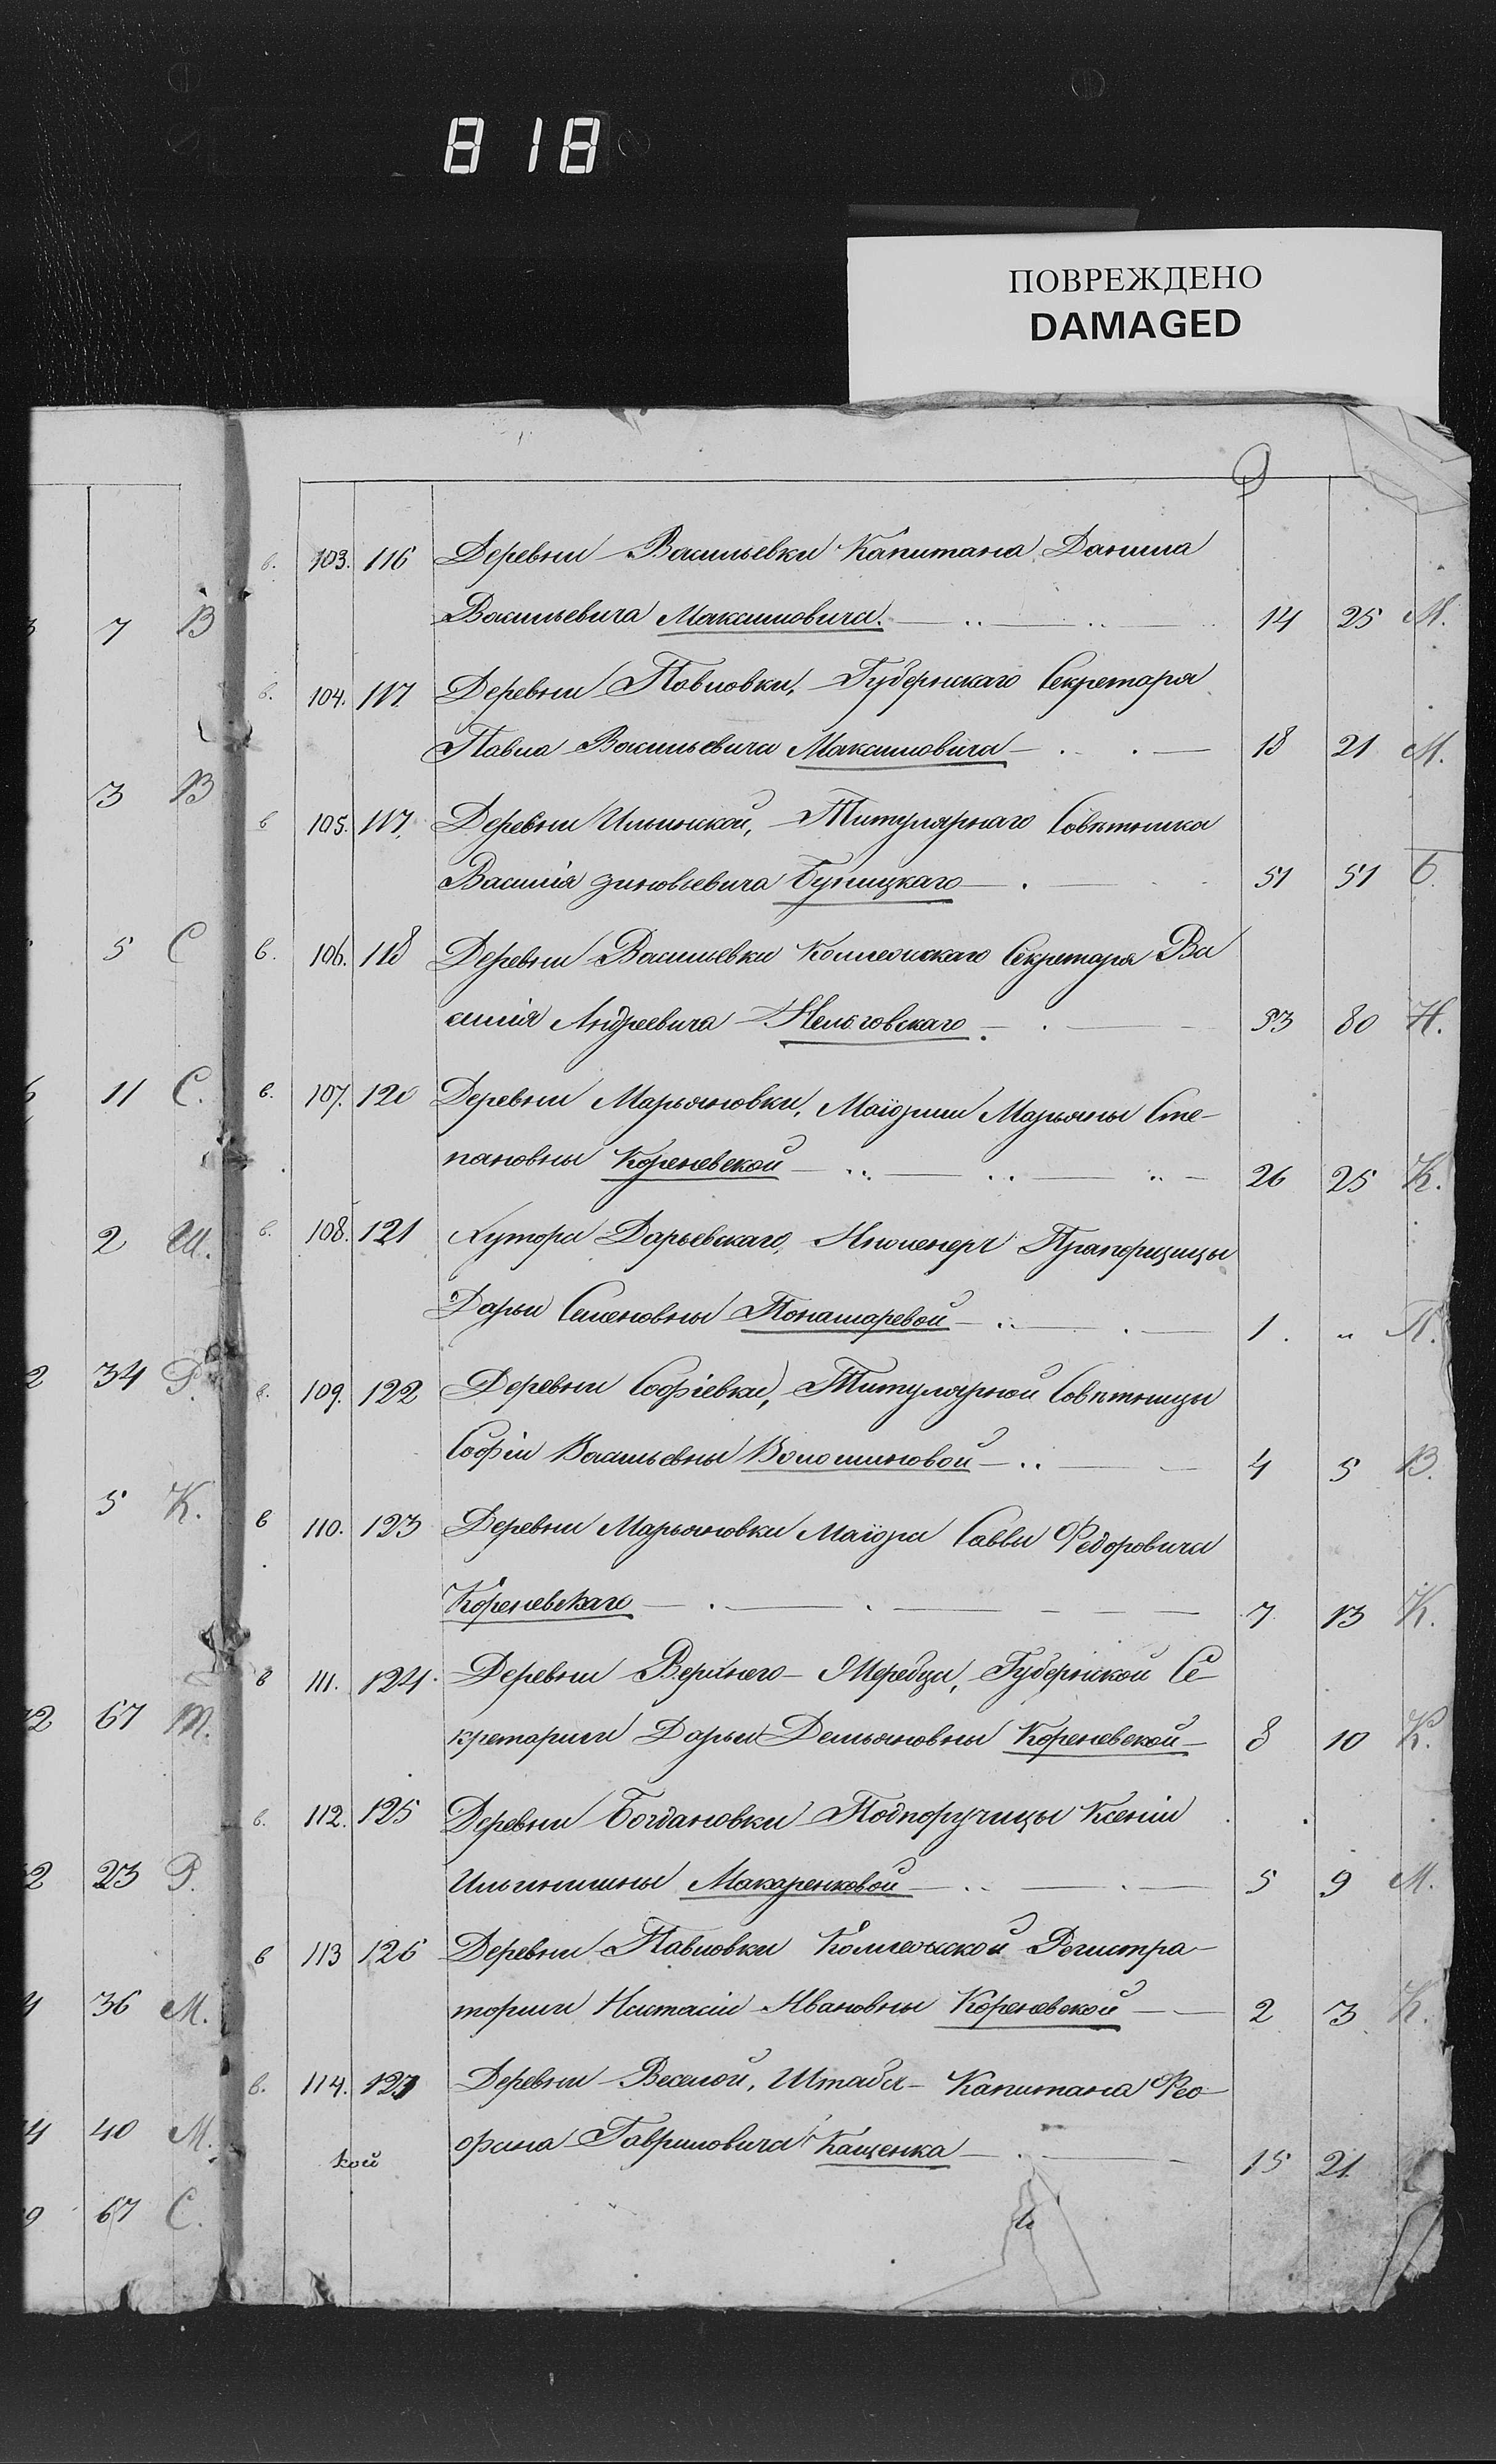 818
ПОВРЕЖДЕНО
DAMAGED
в. 103. 116 Деревни Васильевки Капитана Данила
Васильевича Максимовича. 14 25 М.
в. 104. 117. Деревни Павловки, Губернскаго Секретаря
Павла Васильевича Максимовича 18 21 М.
в 105. 117. Деревни Ильинской, Титулярнаго Совѣтника
Василія Зиновьевича Буницкаго 51 51 Б.
в. 106. 118 Деревни Васильевки Коллежскаго Секретаря Ва
силія Андреевича 80 Н.
в. 107. 120 Деревни Марьяновки, Маіорши Марьяны Сте-
пановны Кореневской 26 25 К.
в. 108. 121 Хутора Дарьевскаго, Инженеръ Прапорщицы
Дарьи Семеновны Понамаревой 1. " П.
в. 109. 122 Деревни Софіевки, Титулярной Совѣтницы
Софіи Васильевны Волошиновой 4 5 В.
в 110. 123 Деревни Марьяновки Маіора Саввы Федоровича
Кореневскаго 7 13 К.
в 111. 124. Деревни Верхняго Губернской Се-
кретарши Дарьи Демьяновны Кореневской 8 10 К.
в. 112. 125 Деревни Богдановки Подпоручицы Ксеніи
Ильинишны Макаренковой 5 9 М.
в 113 126 Деревни Павловки Коллежской Регистра-
торши Настасіи Ивановны Кореневской 2 3 К.
в. 114. 127 Деревни Веселой, Штабсъ-Капитана Фео-
фана Гавриловича Кащенка 15 21.
кой
7 В
3 В
5 С
11 С.
2 Ш.
2 34 Р.
5 К.
67 Т.
2 23 Р.
4 36 М.
4 40 М.
9 67 С.